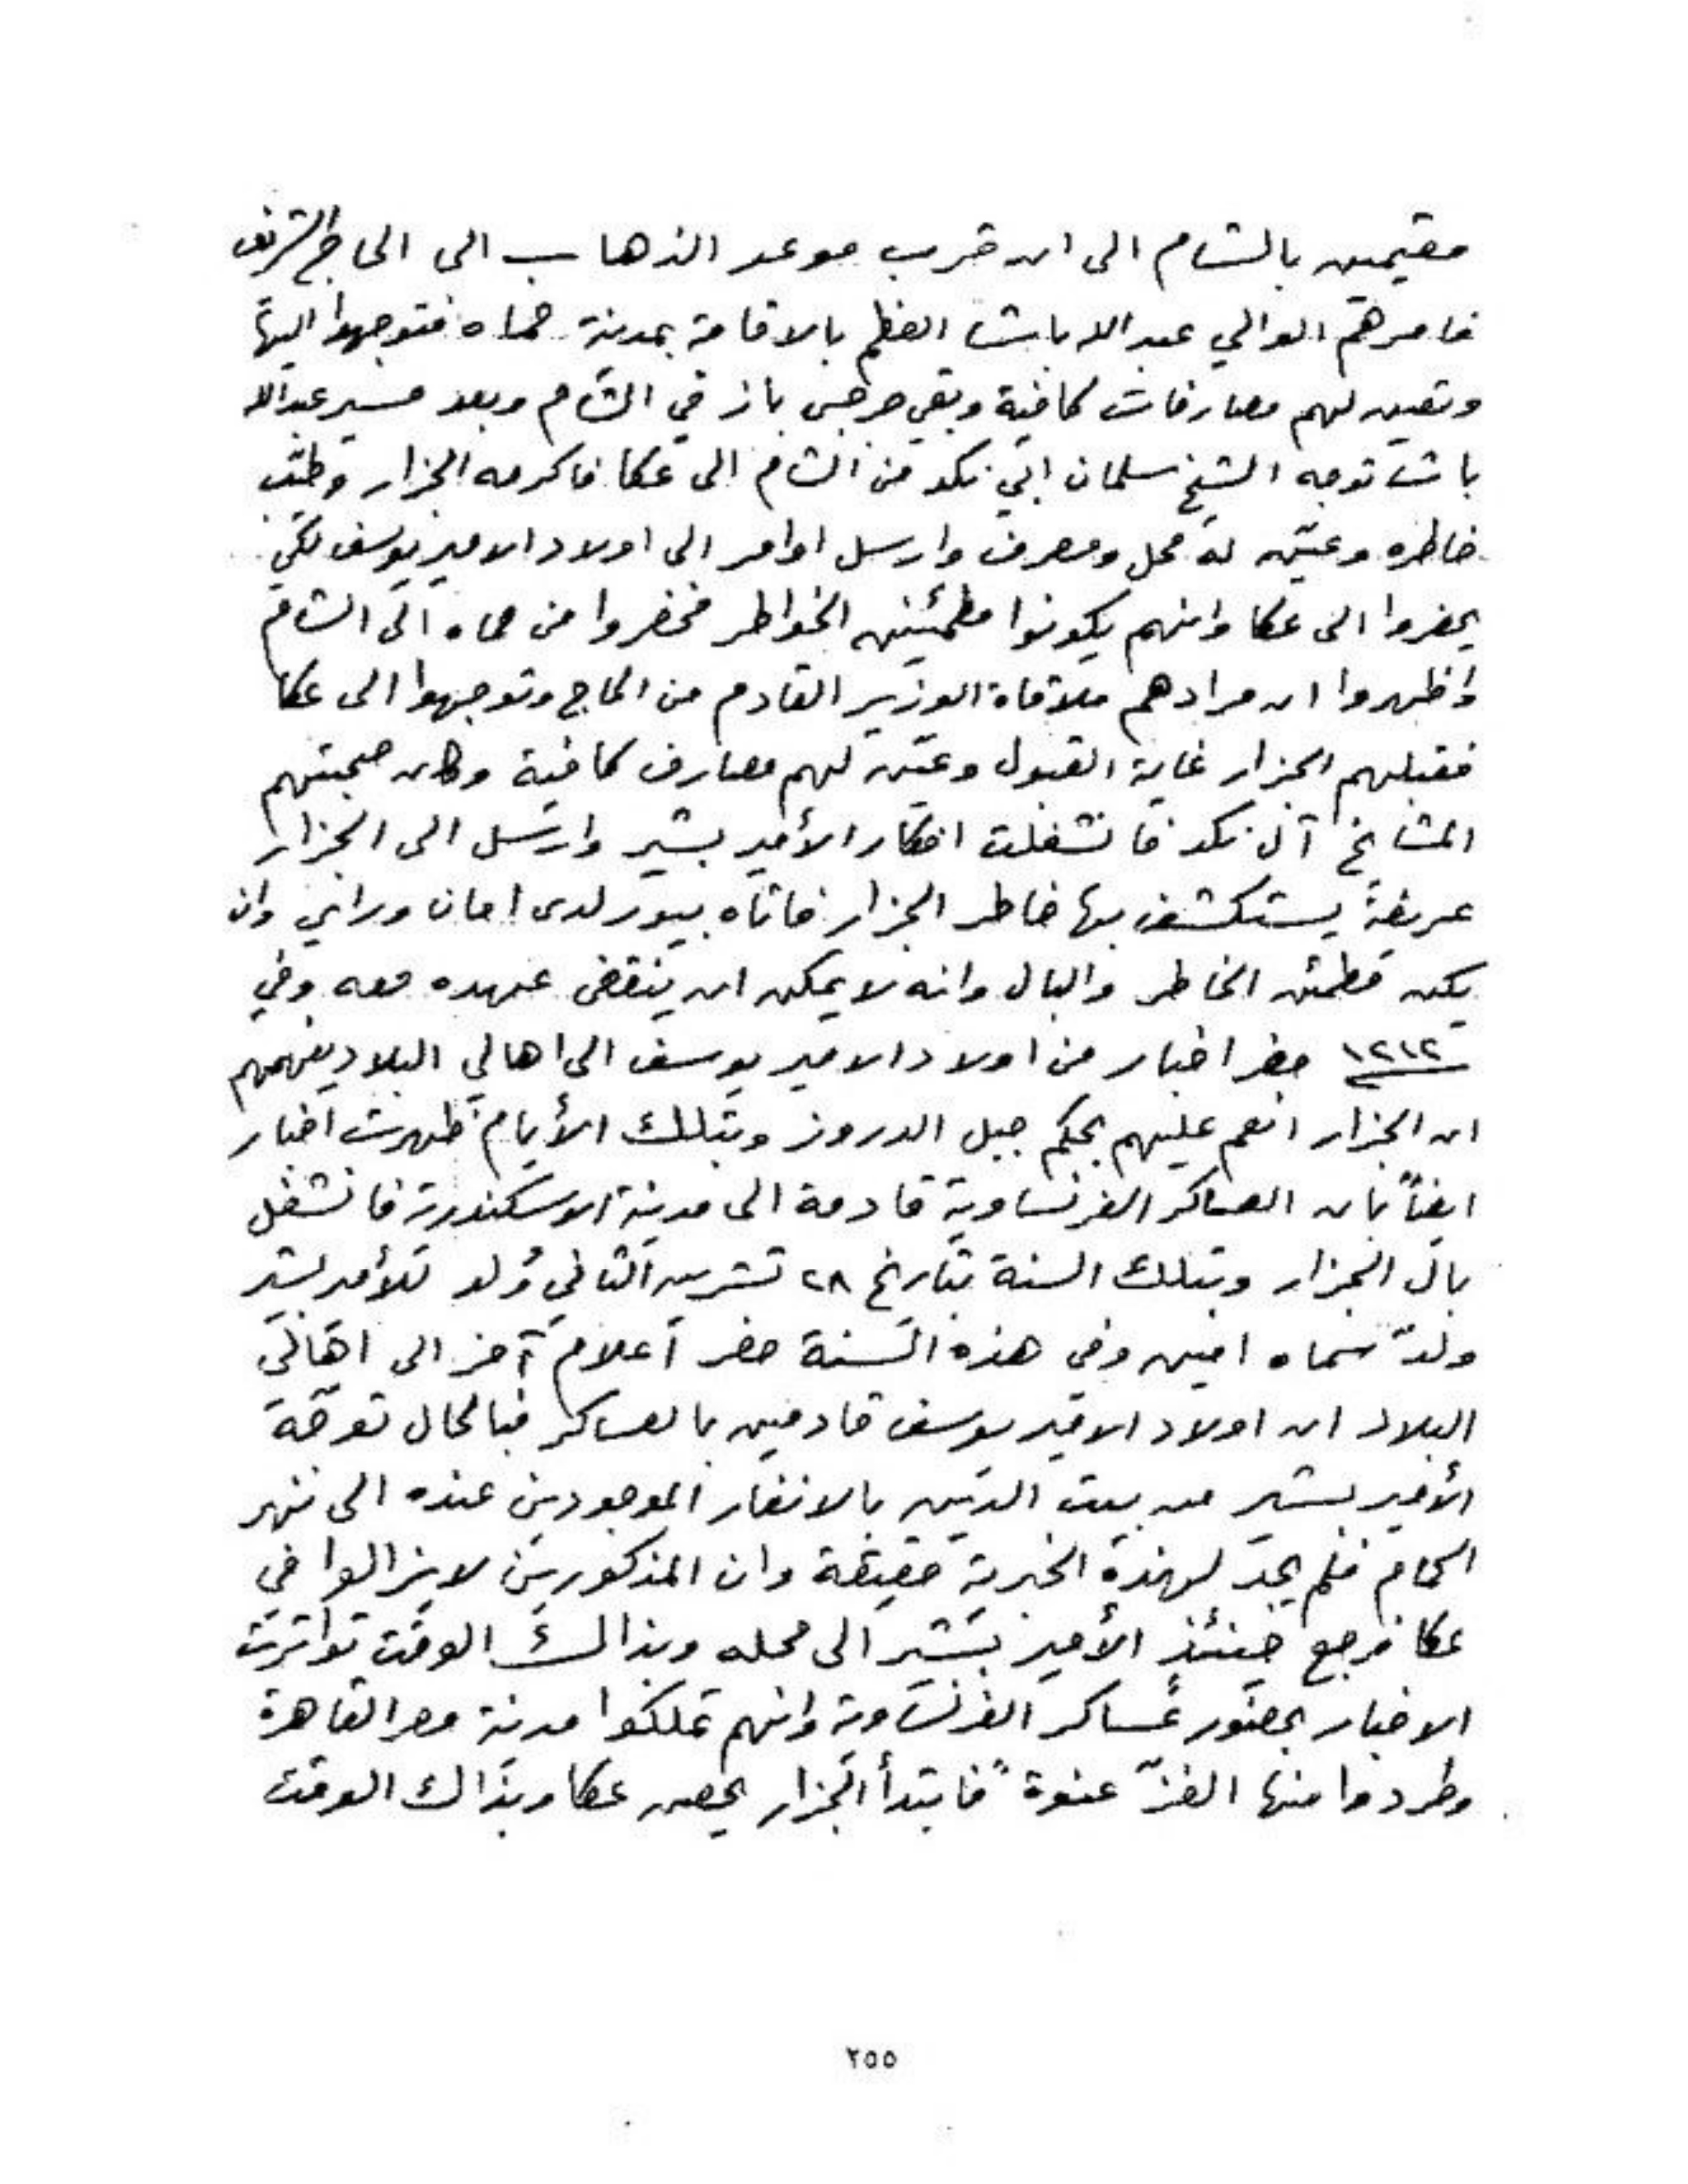 مقيمين بالشام الى ان قرب موعد الذهاب الى الحاج الشريف
فامرهم الوالي عبدالله باشا العظم بالاقامة بمدينة حماه فتوجهوا اليها
وتعين لهم مصارفات كافية وبقي جرجس باز في الشام وبعد مسير عبدالله
باشا توجه الشيخ سلمان ابي نكد من الشام الى عكا فاكرمه الجزار وطيّب
خاطره وعيّن له محل ومصرف وارسل اوامر الى اولاد الامير يوسف لكي
يحضروا الى عكا وانهم يكونوا مطمئينين الخواطر فحضروا من حماه الى الشام
واظهروا ان مرادهم ملاقاة الوزير القادم من الحاج وتوجهوا الى عكا
فقبلهم الجزار غاية القبول وعيّن لهم مصارف كافية وكان صحبتهم
المشايخ آل نكد فانشغلت افكار الأمير بشير وارسل الى الجزار
عريضةً يستكشف بها خاطر الجزار فاتاه بيور لدى امان وراي وان
يكن مطمئن الخاطر والبال وانه لا يمكن ان ينقض عهده معه وفي
١٢١٢ حضر اخبار من اولاد الامير يوسف الى اهالي البلاد يفهمهم
ان الجزار انعم عليهم بحكم جبل الدروز وبتلك الأيام ظهرت اخبار
ايضاً بان العساكر الفرنساوية قادمة الى مدينة الاسكندرية فانشغل
بال الجزار وبتلك السنة بتاريخ ٢٨ تشرين الثاني وُلد للأمير بشير
ولدٌ سماه امين وفي هذه السنة حضر أعلام آخر الى اهالي
البلاد ان اولاد الامير يوسف قادمين بالعساكر فبالحال توجه
الأمير بشير من بيت الدين بالانفار الموجودين عنده الى نهر
الحمام فلم يجد لهذه الخبرية حقيقة وان المذكورين لا يزالوا في
عكا فرجع حينئذٍ الأمير بشير الى محله وبذالك الوقت تواترت
الاخبار بحضور عساكر الفرنساوية وانهم تملكوا مدينة مصر القاهرة
وطردوا منها الغزّ عنوةً فابتدأ الجزار يحصن عكا وبذالك الوقت
٢٥٥